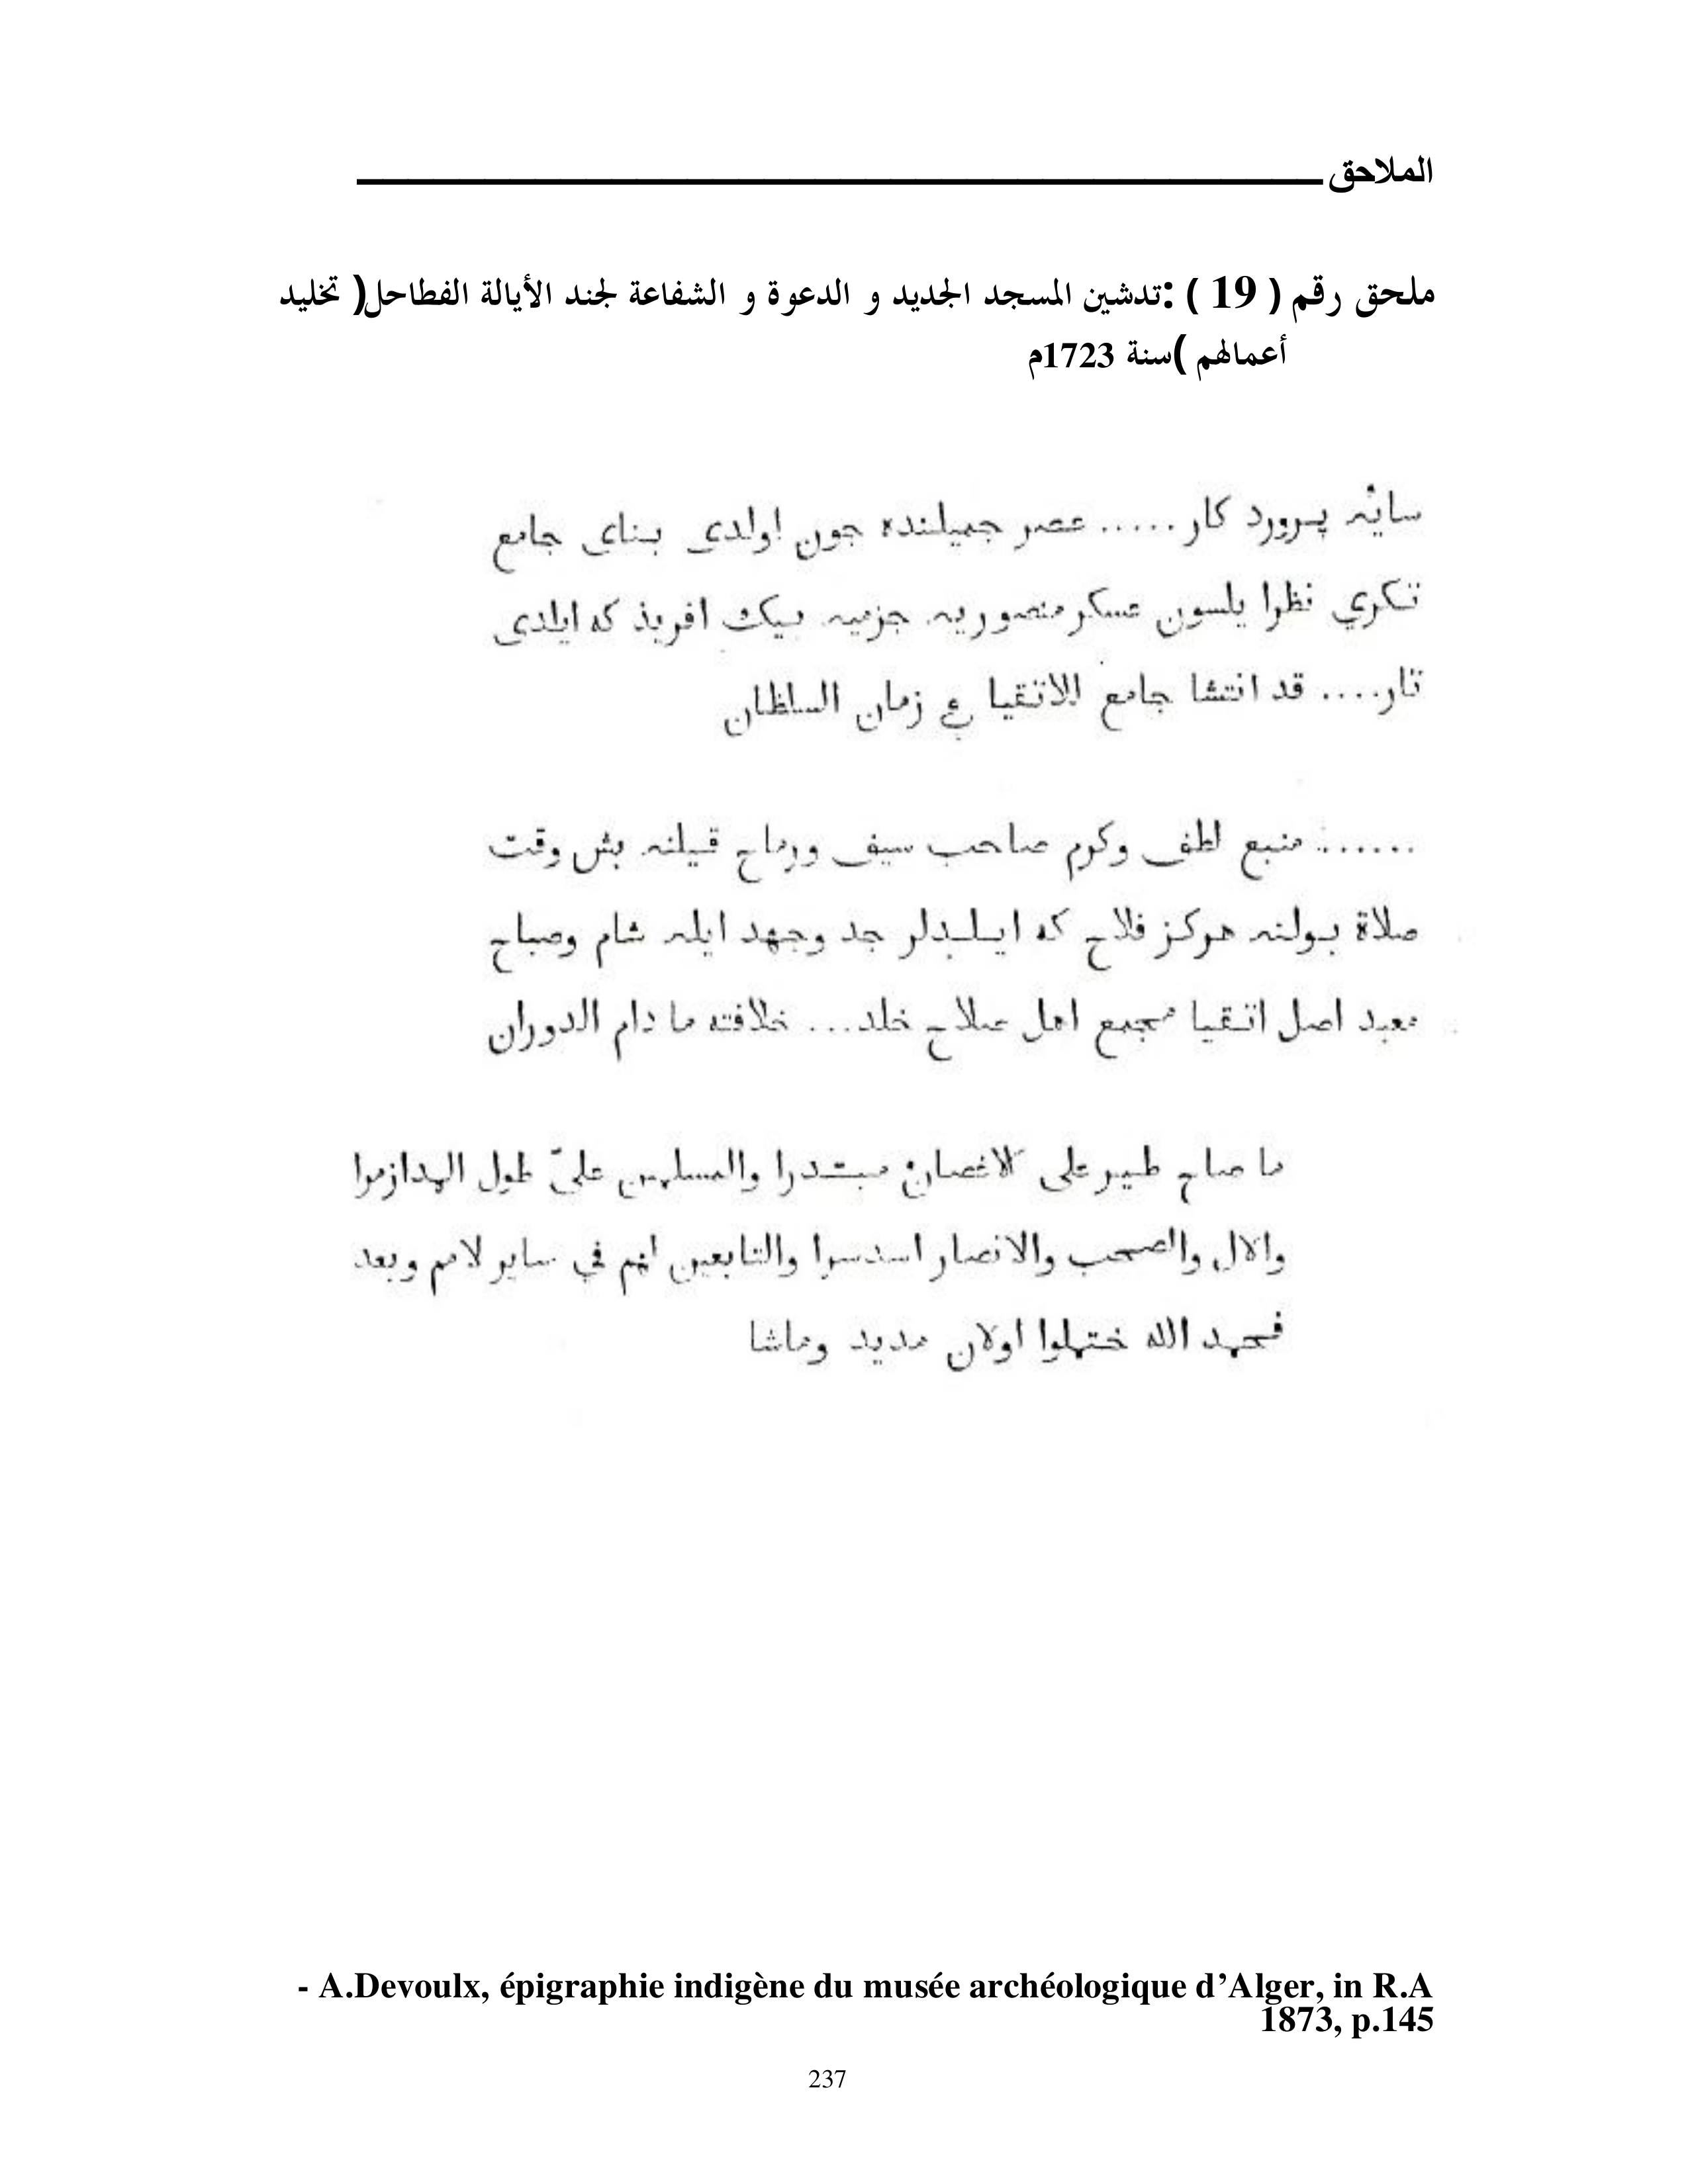 الملاحق
ملحق رقم ( 19 ) :تدشين المسجد الجديد و الدعوة و الشفاعة لجند الأيالة الفطاحل( تخليد
أعمالهم )سنة 1723م
سائه پرورد كار ..... عصر جميلنده جون اولدى بناى جامع
تكري نظرا يلسون عسكر منصوريه جزميه بيك افريذ كه ايلدى
تار.... قد انتشا جامع الاتقيا في زمان السلطان
...... منبع لطف وكرم صاحب سيف ورماح قيلنه بش وقت
صلاة بولنه هركز فلاح كه ايلبدلر جد وجهد ايله شام وصباح
معبد اصل اتقيا مجمع اهل صلاح خلد... خلافته ما دام الدوران
ما صاح طير على الاغصان مبتدرا والمسلمين على طول
والال والصحب والانصار والتابعين لهم في ساير لامم وبعد
الله اولان مديد وماشا
- A.Devoulx, épigraphie indigène du musée archéologique d’Alger, in R.A
1873, p.145
237